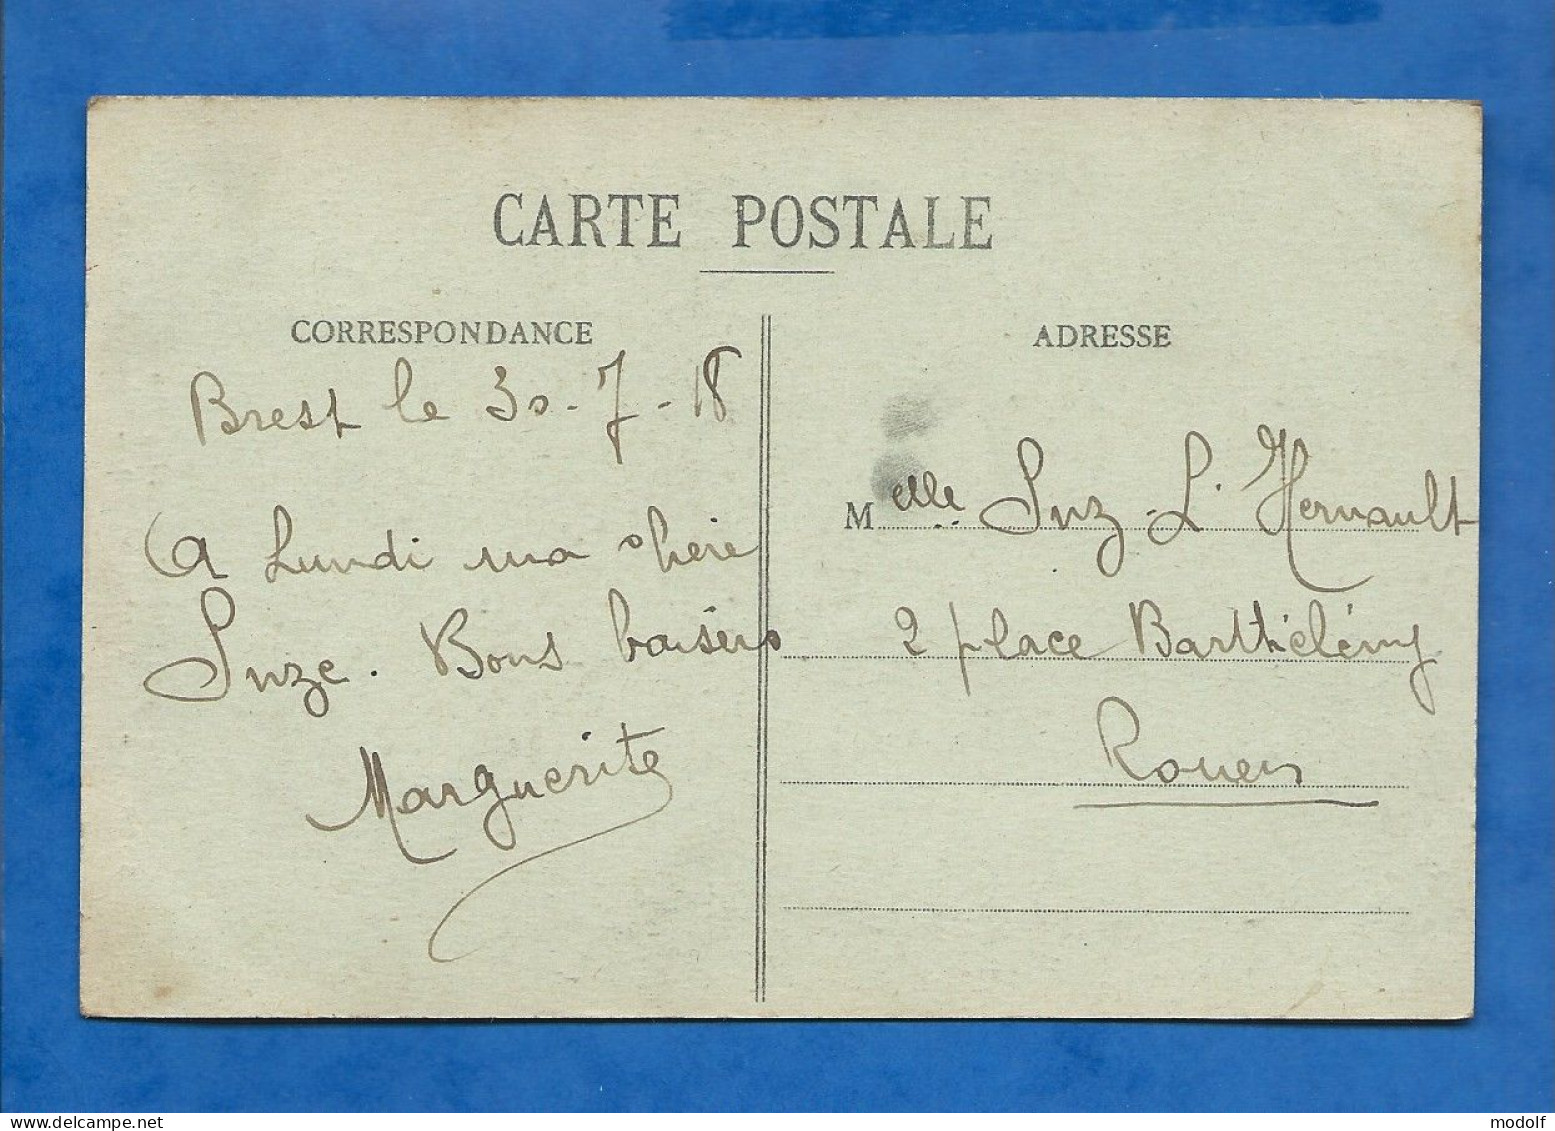 CARTE POSTALE
CORRESPONDANCE
Brest le 30-7-18
A Lundi ma chère
Suze. Bons baisers
Marguerite
ADRESSE
Melle Suz. L'Hernault
2 place Barthélémy
Rouen
www.delcampe.net
modolf